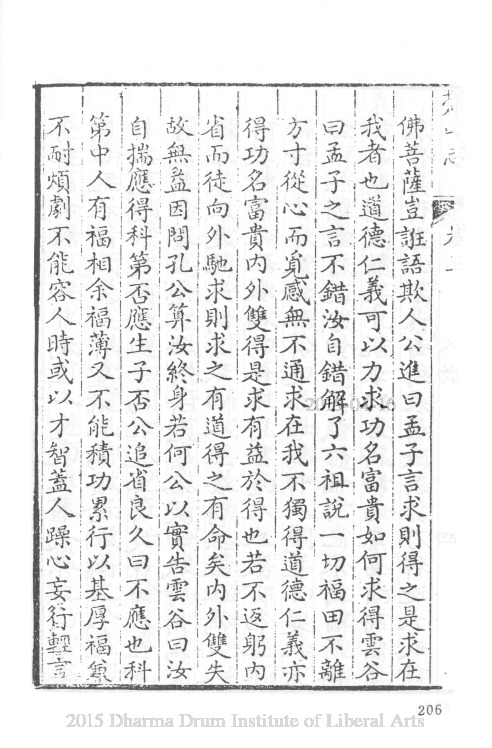 佛菩薩豈誑語欺人公進曰孟子言求則得之是求在
我者也道德仁義可以力求功名富貴如何求得雲谷
曰孟子之言不錯汝自錯解了六祖說一切福田不離
方寸從心而覓感無不通求在我不獨得道德仁義亦
得功名富貴內外雙得是求有益於得也若不返躬內
省而徒向外馳求則求之有道得之有命矣內外雙失
故無益因問孔公算汝終身若何公以實告雲谷曰汝
自揣應得科第否應生子否公追省良久曰不應也科
第中人有福相余福薄又不能積功累行以基厚福兼
不耐煩劇不能容人時或以才智蓋人躁心妄行輕言
206
2015 Dharma Drum Institute of Liberal Arts